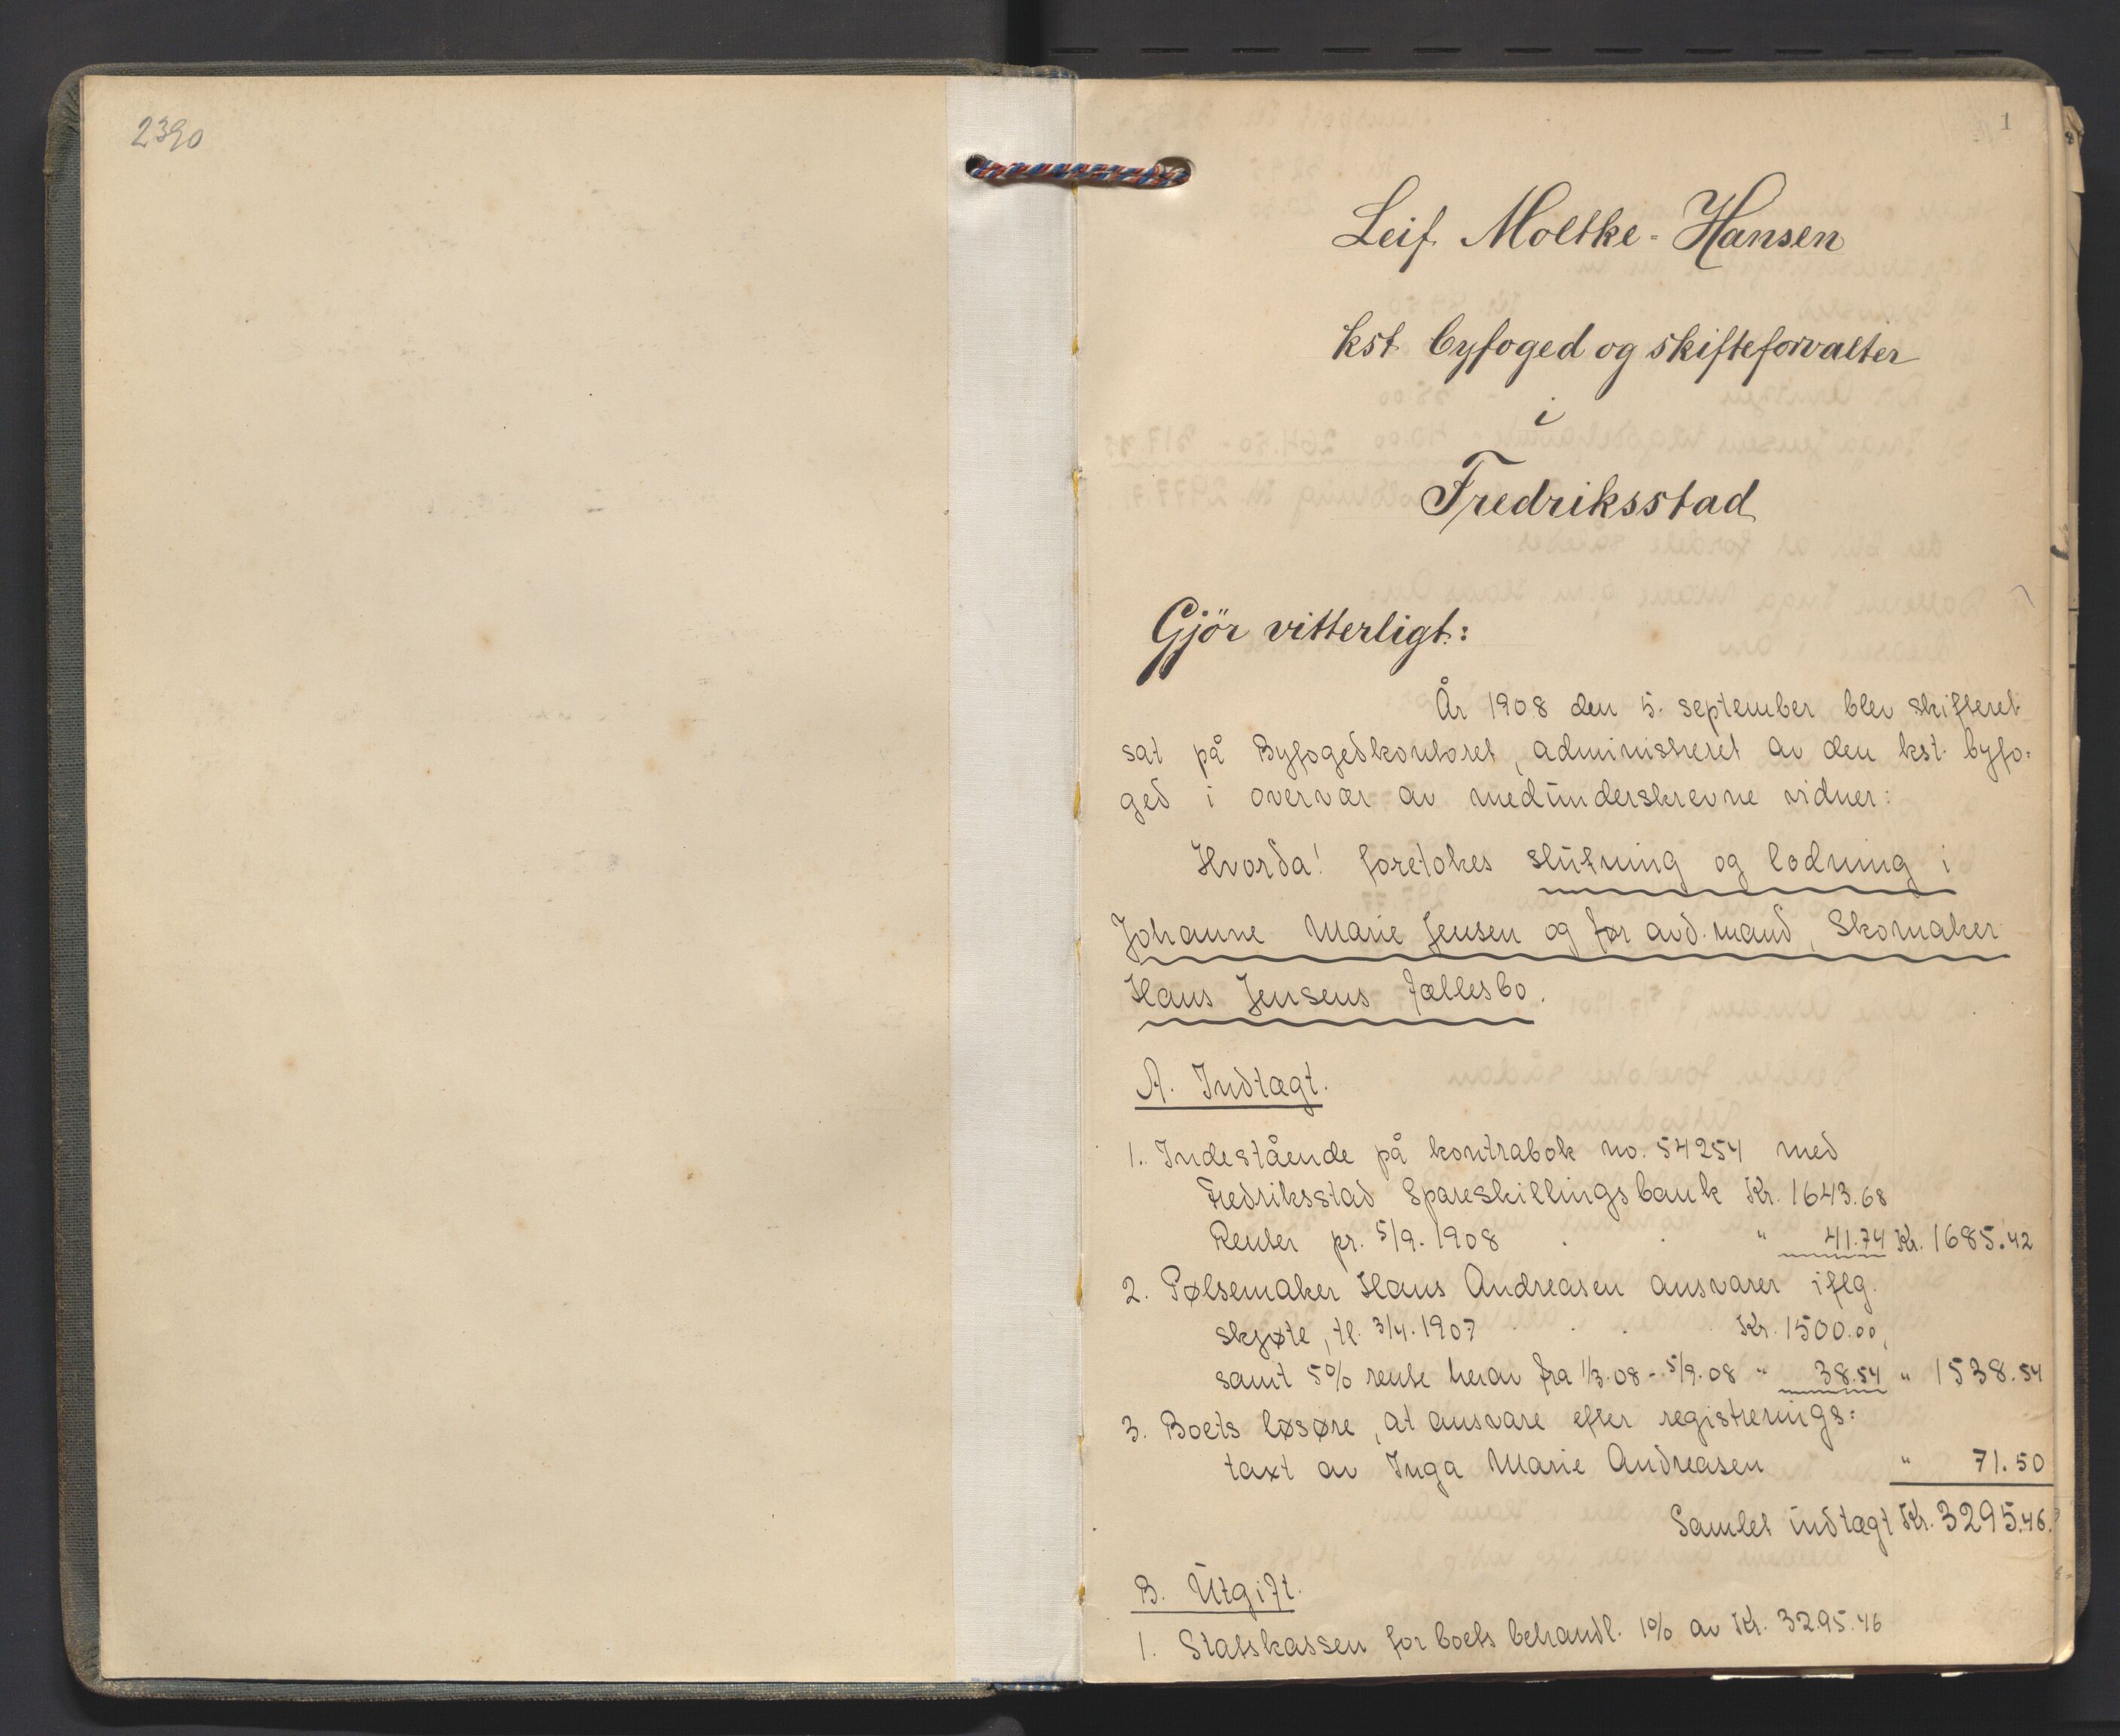 2390
1
Leif Moltke-Hansen
kst. byfoged og skifteforvalter
i
Fredriksstad
Gjör vitterligt:
År 1908 den 5. september blev skifteret
sat på Byfogedkontoret, administreret av den kst. byfo=
ged i overvær av medunderskrevne vidner:
Hvorda! foretokes slutning og lodning i
Johanne Marie Jensen og før avd. mand, Skomaker
Hans Jensens fællesbo.
A. Indtægt.
1. Indestående på kontrabok no. 54254 med
Fredriksstad Spareskillingsbank Kr. 1643.68
Renter pr. 5/9. 1908 . . " 41.74 Kr. 1685.42
2. Pølsemaker Hans Andreasen ansvarer iflg.
skjøte, tl. 3/4. 1907 . . . Kr. 1500.00,
samt 5% rente herav fra 1/3.08 - 5/9.08 " 38.54 " 1538.54
3. Boets løsøre, at ansvare efter registrerings=
taxt av Inga Marie Andreasen " 71.50
Samlet indtægt Kr. 3295.46.
B. Utgift.
1. Statskassen for boets behandl. 1% av Kr. 3295.46